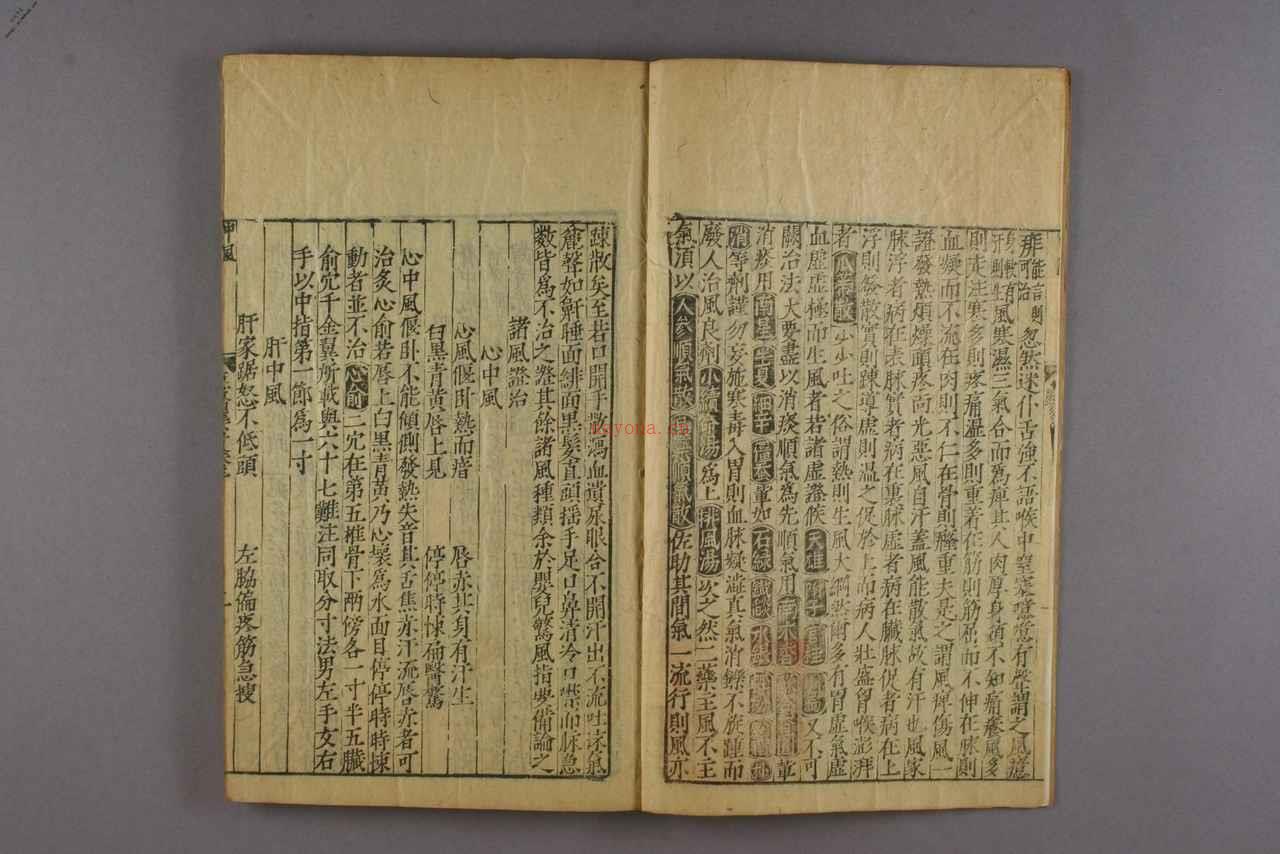 痱能言則可治忽然迷仆舌強不語喉中窒塞噫噫有聲謂之風癔
風寒濕三氣合而為痺其人肉厚身頑不知痛癢風多
則走注寒多則疼痛濕多則重着在筋則筋屈而不伸在脉則
血凝而不流在肉則不仁在骨則癃重夫是之謂風痺傷風一
證發熱煩燥頭疼面光惡風自汗蓋風能散氣故有汗也風家
脉浮者病在表脉實者病在裏脉虛者病在臟脉促者病在上
浮則發散實則疎導虛則溫之促於上而病人壯盛胷喉澎湃
者瓜蒂散少少吐之俗謂熱則生風大綱然爾多有胃虛氣虛
血虛虛極而生風者若諸虛證候天雄附子官桂又不可
闕治法大要盡以消痰順氣為先順氣用南木香
消痰用南星半夏細辛僵蚕輩如石綠鐵粉水銀
消等劑謹勿妄施寒毒入胃則血脉凝澁真氣消鑠不旋踵而
廢人治風良劑小續命湯為上排風湯次之然二藥主風不主
氣須以人參順氣散烏藥順氣散佐助其間氣一流行則風亦
疎散矣至若口開手散瀉血遺尿眼合不開汗出不流吐沫氣
麄聲如鼾睡面緋面黑髮直頭搖手足口鼻清冷口噤而脉急
數皆為不治之證其餘諸風種類余於嬰兒驚風指要備論之
諸風證治
心中風
心風偃卧熱而瘖 唇赤其身有汗生
白黑青黃唇上見 停停時悚痛醫驚
心中風偃卧不能傾側發熱失音其舌焦赤汗流唇赤者可
治灸心俞若唇上白黑青黃乃心壞為水面目停停時時悚
動者並不治心俞二穴在第五椎骨下兩傍各一寸半五臟
俞穴千金翼所載與六十七難注同取分寸法男左手女右
手以中指第一節為一寸
肝中風
肝家踞怒不低頭 左脇偏疼筋急搜
中風
uyona.cn